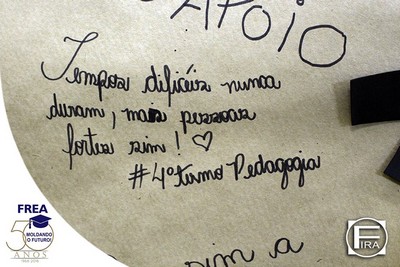 APOIO
Tempos difíceis nunca
duram, mais pessoas
fortes sim! ♡
#4º turno Pedagogia
sim a
FREA
50
MOLDANDO
O FUTURO!
ANOS
FIRA